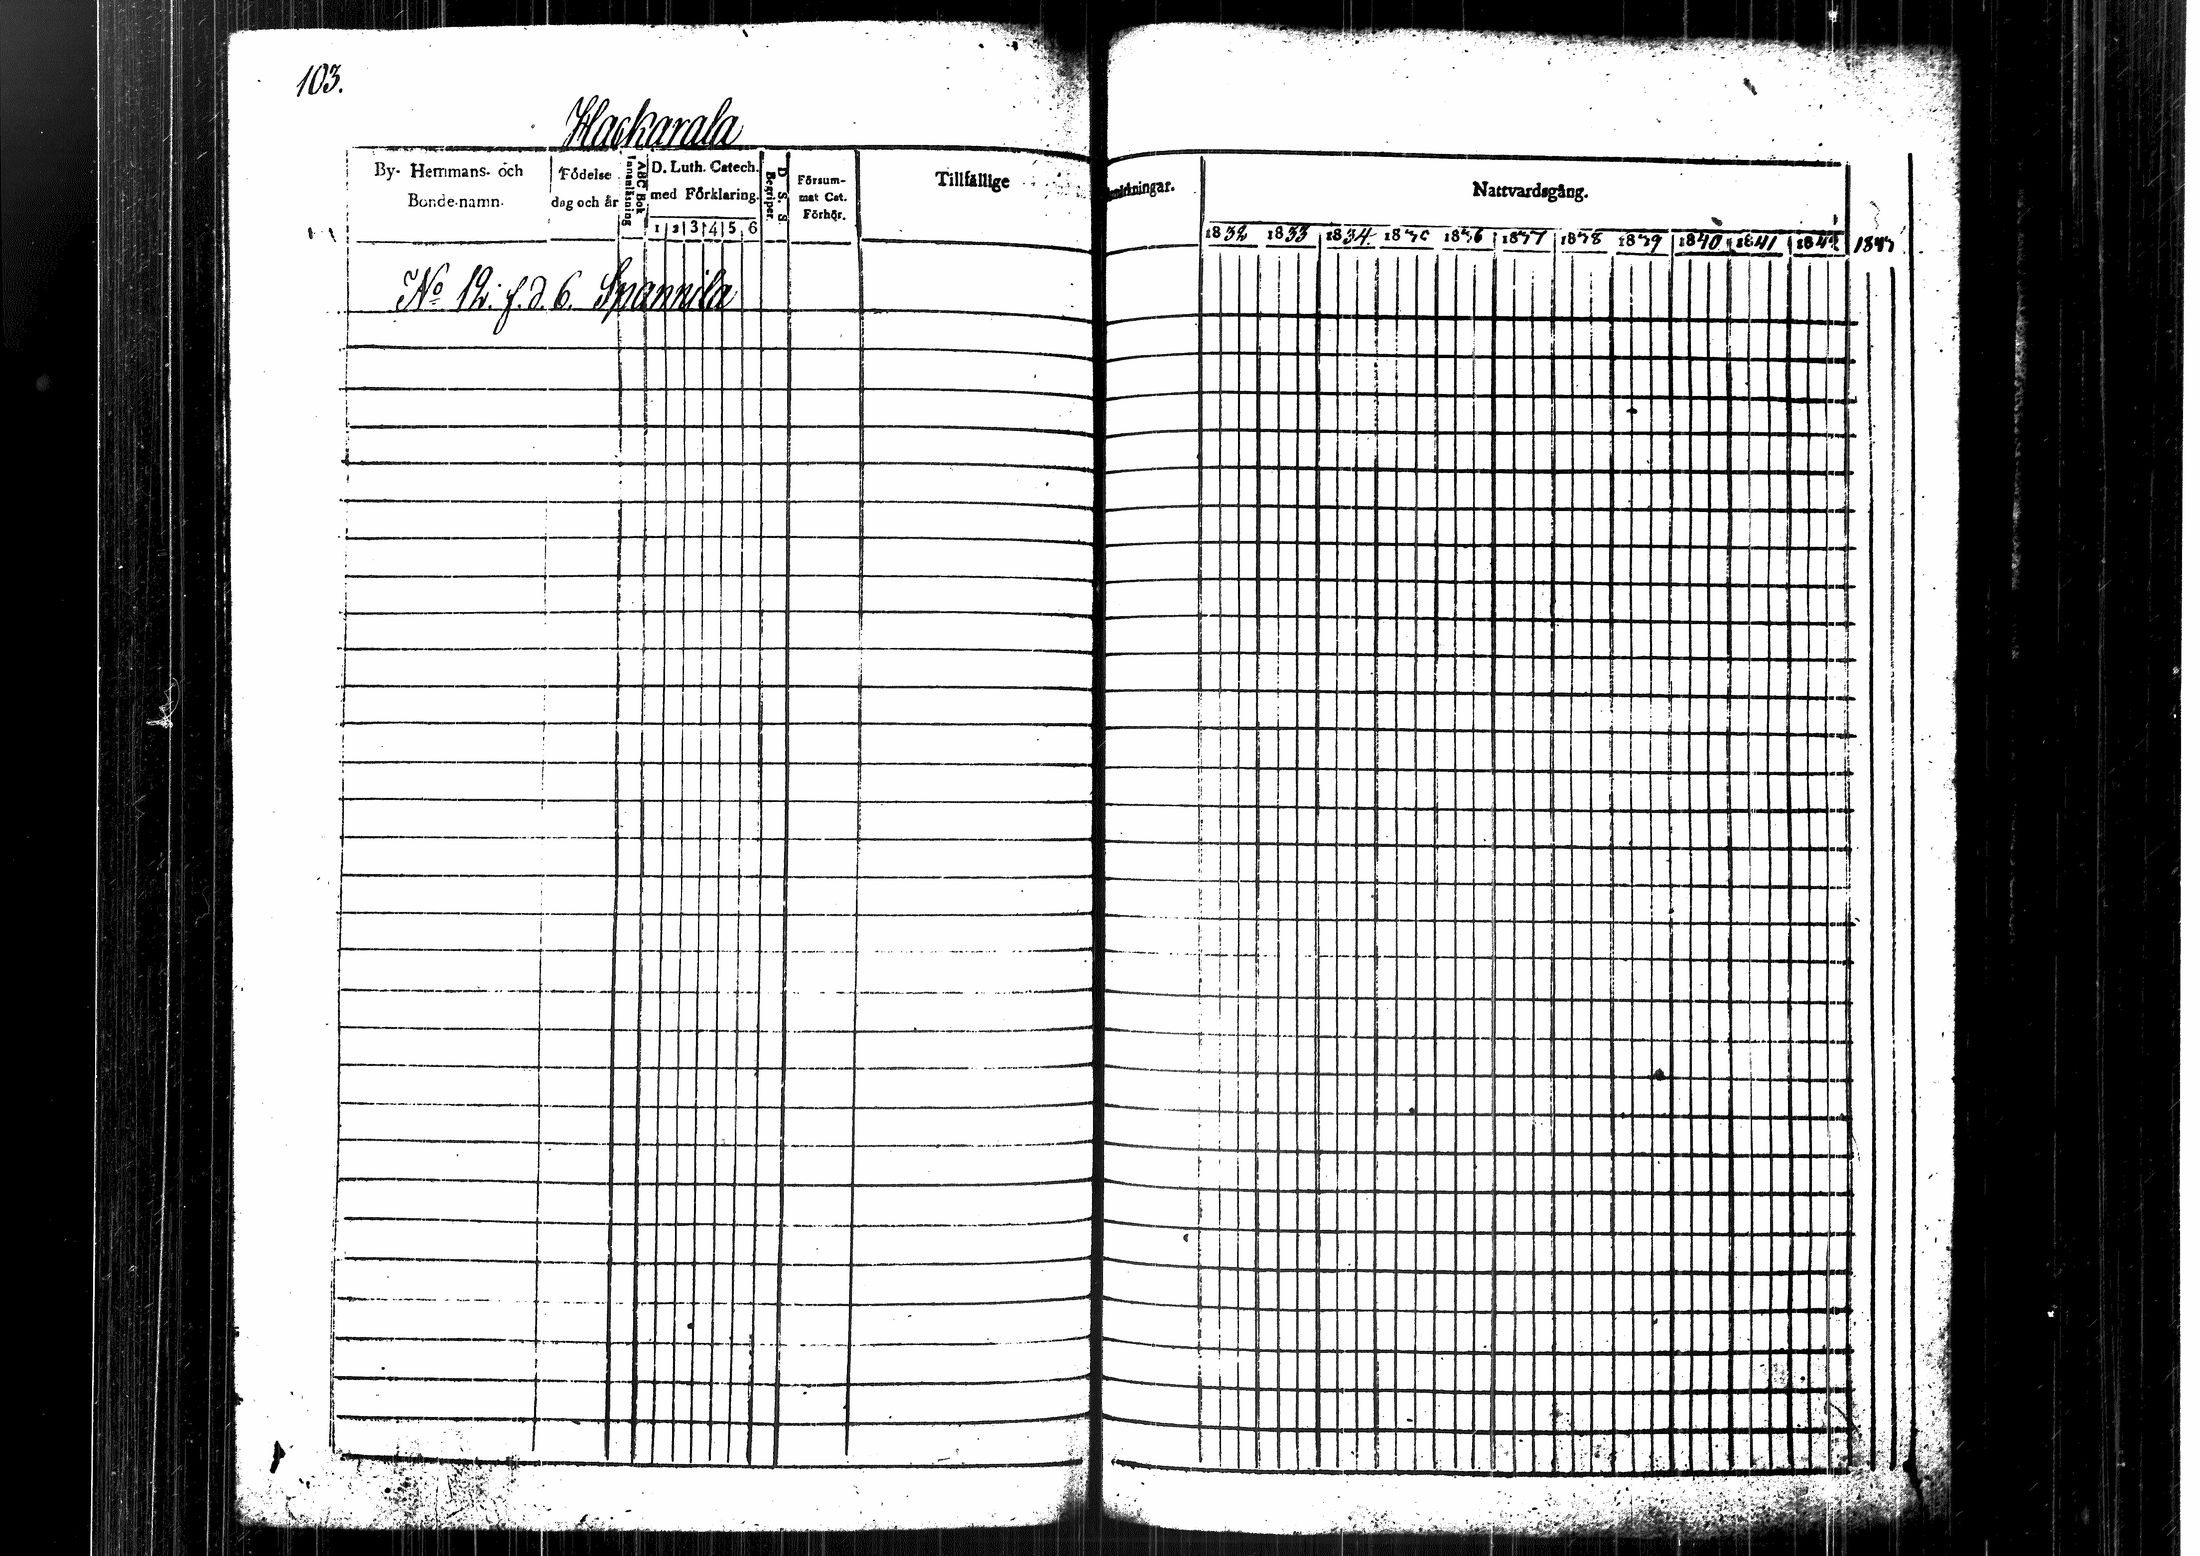 103.
Hackarala
By- Hemmans- och
Bonde-namn.
Födelse
dag och år
Innanläsning
ABC Bok
D. Luth. Catech.
med Förklaring.
1 2 3 4 5 6
Begriper.
D. S. S
Försum-
mat Cat.
Förhör.
Tillfällige
Anmärkningar.
Nattvardsgång.
1832 1833 1834 1835 1836 1837 1838 1839 1840 1841 1842 1843
No 12. f.d. 6. Spannila